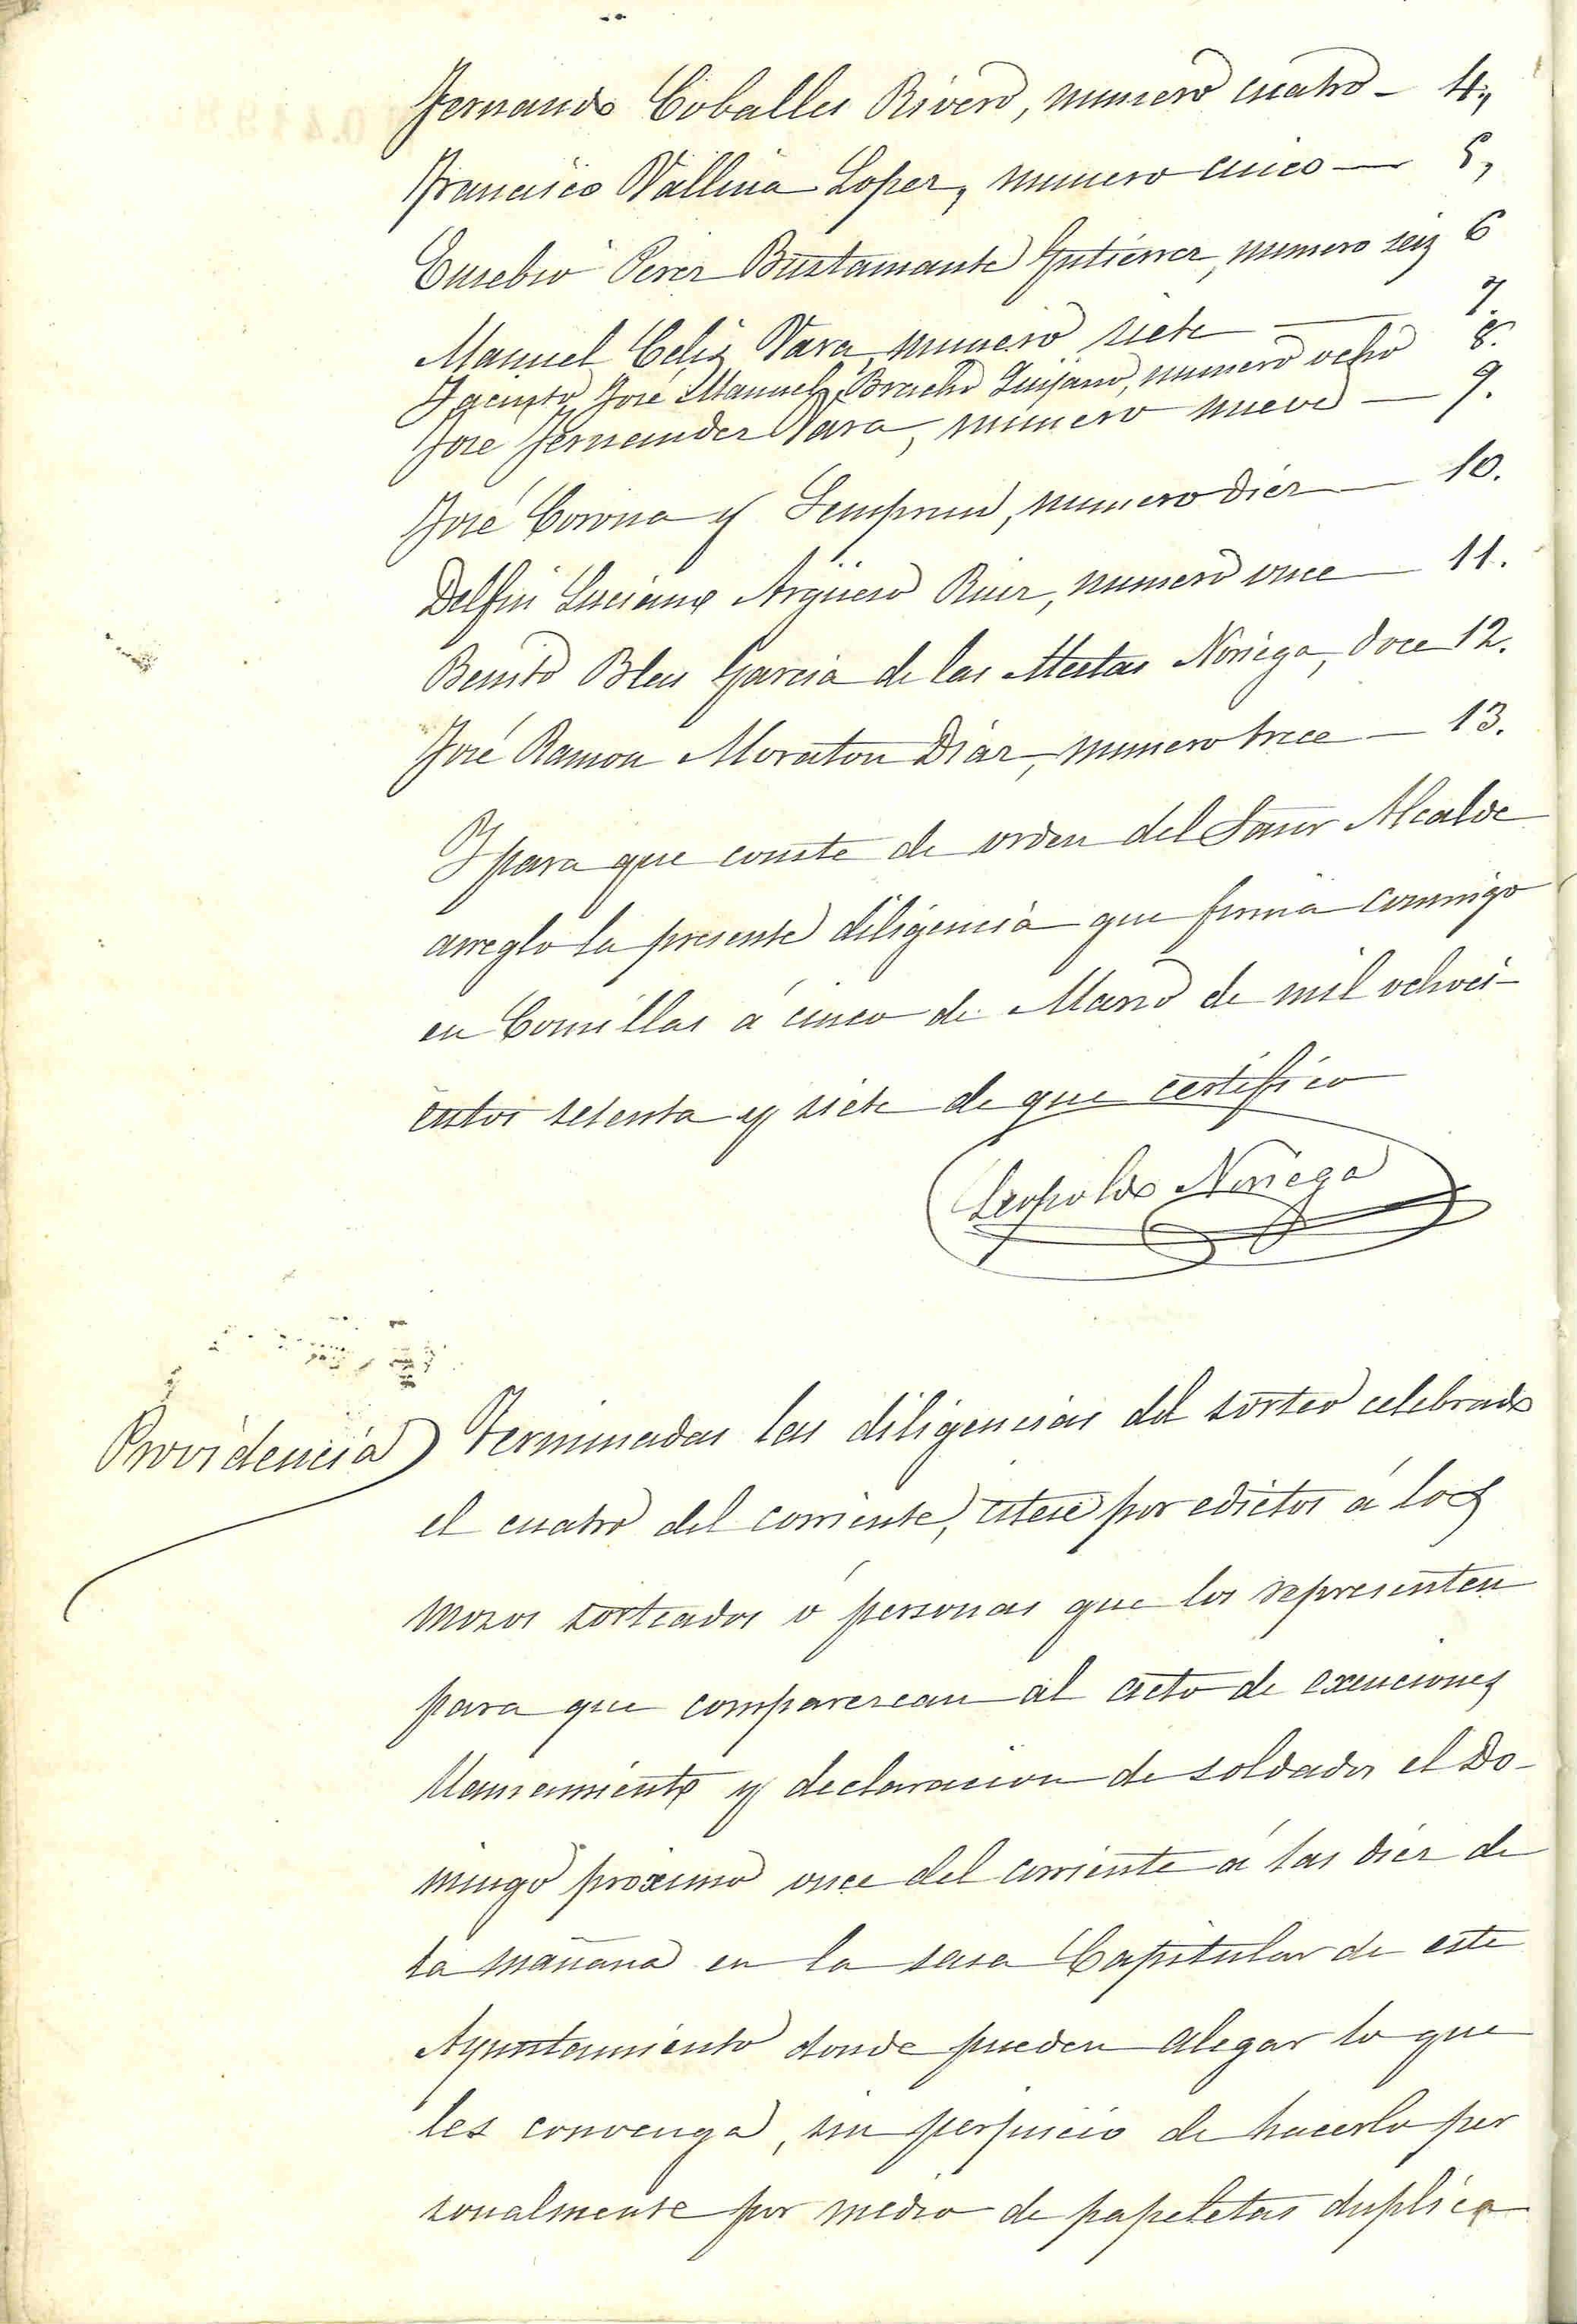 Fernando Coballes Rivero, numero cuatro - 4,
Francisco Vallina Lopez, numero cinco — 5,
Eusebio Perez Bustamante Gutierrez, numero seis 6
Manuel Celis Vara, numero siete — 7.
Jacinto José Manuel Bracho Quijano, numero ocho 8.
José Fernandez Vara, numero nueve — 9.
José Corona y Semprun, numero diez — 10.
Delfin Luciano Argüeso Ruiz, numero once — 11.
Benito Blas Garcia de las Mestas Noriega, doce 12.
José Ramon Moraton Diaz, numero trece — 13.
Y para que conste de orden del Señor Alcalde
arreglo la presente diligencia que firma conmigo
en Comillas á cinco de Marzo de mil ochoci-
entos setenta y siete de que certifico
Leopoldo Noriega
Providencia) Terminadas las diligencias del sorteo celebrado
el cuatro del corriente, citese por edictos á los
mozos sorteados ó personas que los representen
para que comparezcan al acto de exenciones
llamamiento y declaracion de soldados el Do-
mingo proximo once del corriente á las diez de
la mañana en la sasa Capitular de este
Ayuntamiento donde pueden alegar lo que
les convenga, sin perjuicio de hacerlo per
sonalmente por medio de papeletas duplica